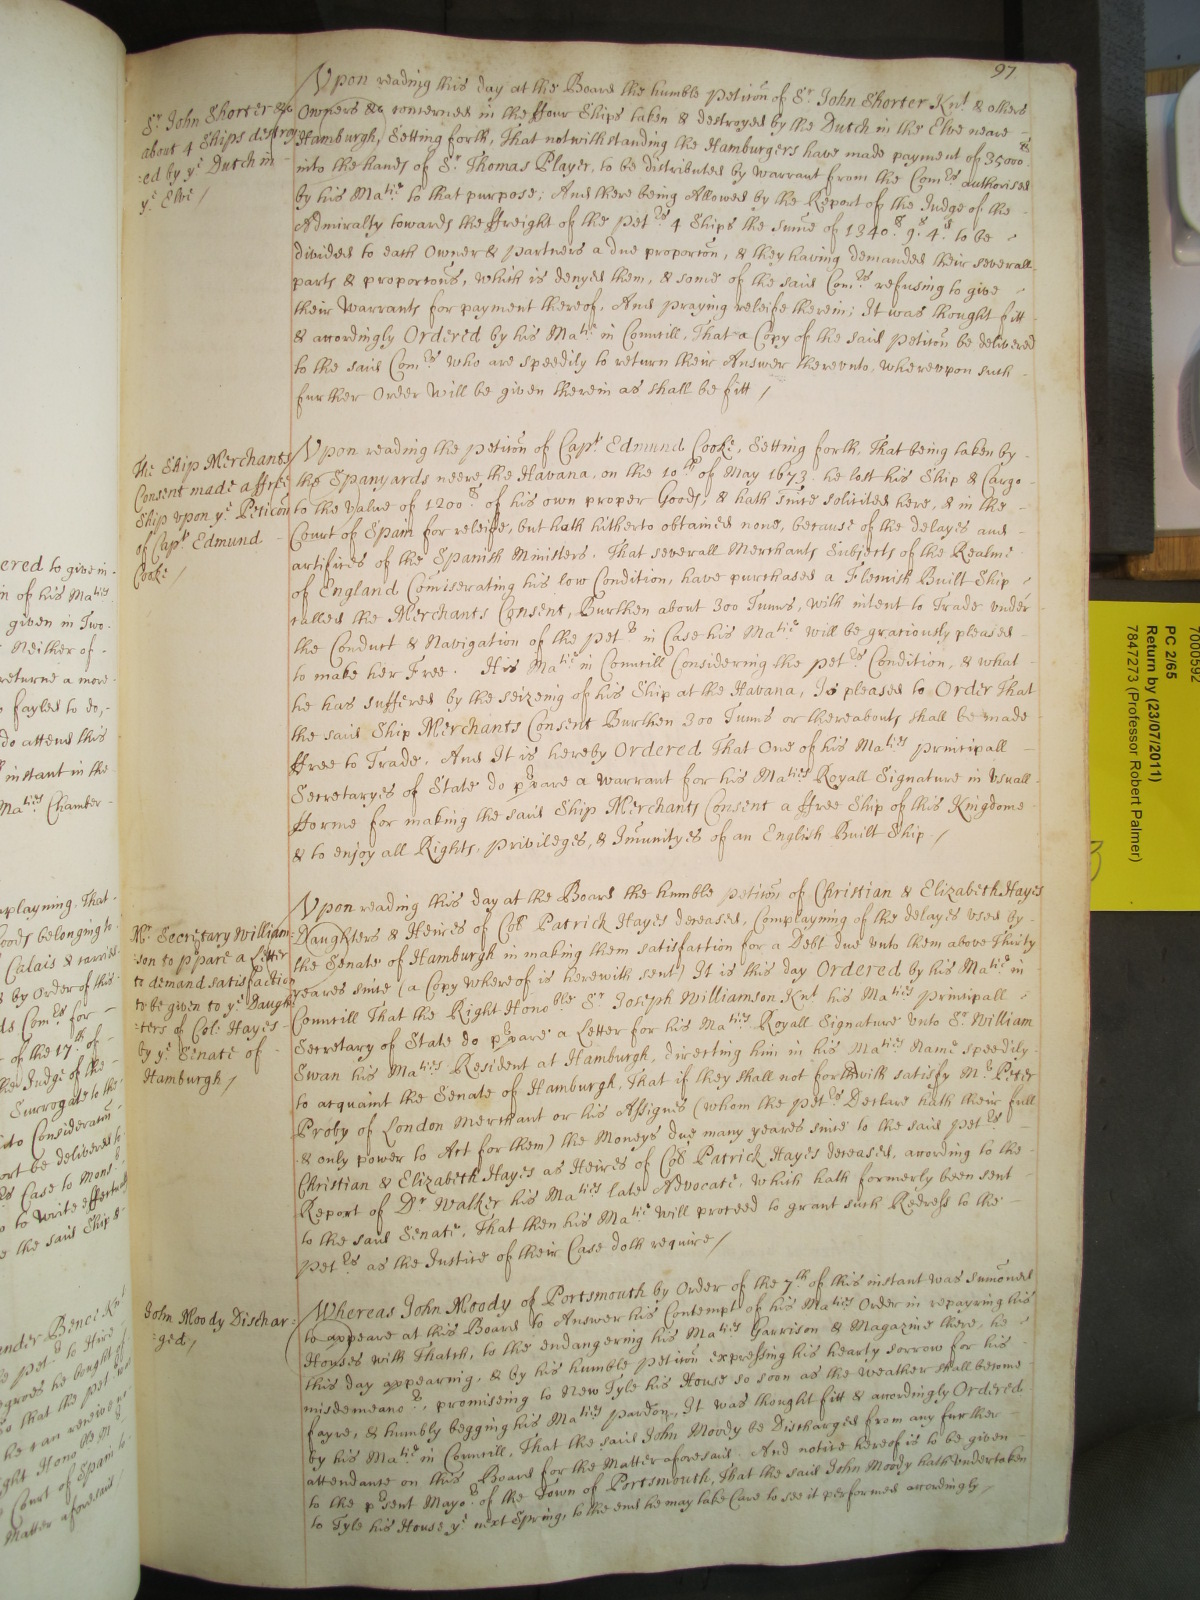 97
Sr. John Shorter &c
about 4 Ships destroy
:ed by ye. Dutch in
ye. Elve /
Vpon reading this day at the Board the humble Peticōn of Sr. John Shorter Knt. & others
Owners &c concerned in the ffour Ships taken & destroyed by the Dutch in the Elve neare
Hamburgh, Setting forth, That notwithstanding the Hamburgers have made payment of 35000.£
into the hands of Sr. Thomas Player, to be distributed by Warrant from the Com.rs authorised
by his Ma.tie to that purpose; And there being Allowed by the Report of the Judge of the
Admiralty towards the ffreight of the Pet.rs 4 Ships the sum̄e of 1340.£ 9.s 4.d to be
divided to each Owner & Partners a due proporcōn, & they having demanded their severall
parts & proporcōns, which is denyed them, & some of the said Com.rs refusing to give
their Warrants for payment thereof, And praying releife therein; It was thought fitt
& accordingly Ordered by his Ma.tie in Councill, That a Copy of the said Peticōn be delivered
to the said Com.rs who are speedily to return their Answer therevnto, wherevpon such
further Order will be given therein as shall be fitt /
The Ship Merchants
Consent made a ffree
Ship vpon ye. Peticōn
of Cap.t Edmund
Cooke /
Vpon reading the Peticōn of Cap.t Edmund Cooke, Setting forth, That being taken by
the Spanyards neere the Havana, on the 10.th of May 1673. he lost his Ship & Cargo
to the Value of 1200.£ of his own proper Goods; & hath since solicited here, & in the
Court of Spain for releife, but hath hitherto obtained none, because of the delayes and
artifices of the Spanish Ministers. That severall Merchants Subjects of the Realme
of England Com̄iserating his low Condition, have purchased a Flemish Built Ship
called the Merchants Consent, Burthen about 300 Tunns, with intent to Trade vnder
the Conduct & Navigation of the Pet.r in Case his Ma.tie will be graciously pleased
to make her Free. His Ma.tie in Councill Considering the Pet.rs Condition, & what
he has suffered by the seizeing of his Ship at the Havana, Is pleased to Order That
the said Ship Merchants Consent Burthen 300 Tunns or thereabouts shall be made
ffree to Trade. And It is hereby Ordered That One of his Ma.ties Principall
Secretaryes of State do prpare a Warrant for his Ma.ties Royall Signature in Vsuall
fforme for making the said Ship Merchants Consent a ffree Ship of this Kingdome
& to enjoy all Rights, Priviledges, & Im̄unityes of an English Built Ship /
Mr. Secretary William:
:son to ppare a Letter
to demand satisfaction
to be given to ye. Daugh:
:ters of Col: Hayes
by ye. Senate of
Hamburgh /
Vpon reading this day at the Board the humble Peticōn of Christian & Elizabeth Hayes
Daughters & Heires of Coll Patrick Hayes deceased, Complayning of the delayes vsed by
the Senate of Hamburgh in making them satisfaction for a Debt due vnto them above Thirty
yeares since (a Copy whereof is herewith sent) It is this day Ordered by his Ma.tie in
Councill That the Right Hono.ble Sr. Joseph Williamson Knt. his Ma.ties Principall
Secretary of State do prpare a Letter for his Ma.ties Royall Signature vnto Sr. William
Swan his Ma.ties Resident at Hamburgh, directing him in his Ma.ties Name speedily
to acquaint the Senate of Hamburgh, That if they shall not forthwith satisfy Mr. Peter
Proby of London Merchant or his Assignes (whom the Pet.rs Declare hath their full
& only power to Act for them) the Moneys due many yeares since to the said Pet.rs
Christian & Elizabeth Hayes as Heires of Coll Patrick Hayes deceased, according to the
Report of Dr. Walker his Ma.ties late Advocate, which hath formerly been sent
to the said Senate, That then his Ma.tie will proceed to grant such Redress to the
Pet.rs as the Justice of their Case doth require /
John Moody Dischar:
:ged /
Whereas John Moody of Portsmouth by Order of the 7.th of this instant was sum̄oned
to appeare at this Board to Answer his Contempt of his Ma.ties Order in repayring his
Houses with Thatch, to the endangering his Ma.ties Garrison & Magazine there, he
this day appearing, & by his humble Peticōn expressing his hearty sorrow for his
misdemeano.r, promiseing to New Tyle his House so soon as the weather shall become
fayre, & humbly begging his Ma.ties Pardon, It was thought fitt & accordingly Ordered
by his Ma.tie in Councill, That the said John Moody be Discharged from any further
attendance on this Board for the Matter aforesaid. And notice hereof is to be given
to the prsent Mayo.r of the Town of Portsmouth, That the said John Moody hath vndertaken
to Tyle his House ye. next Spring, to the end he may take Care to see it performed accordingly /
7000592
PC 2/65
Return by (23/07/2011)
7847273 (Professor Robert Palmer)